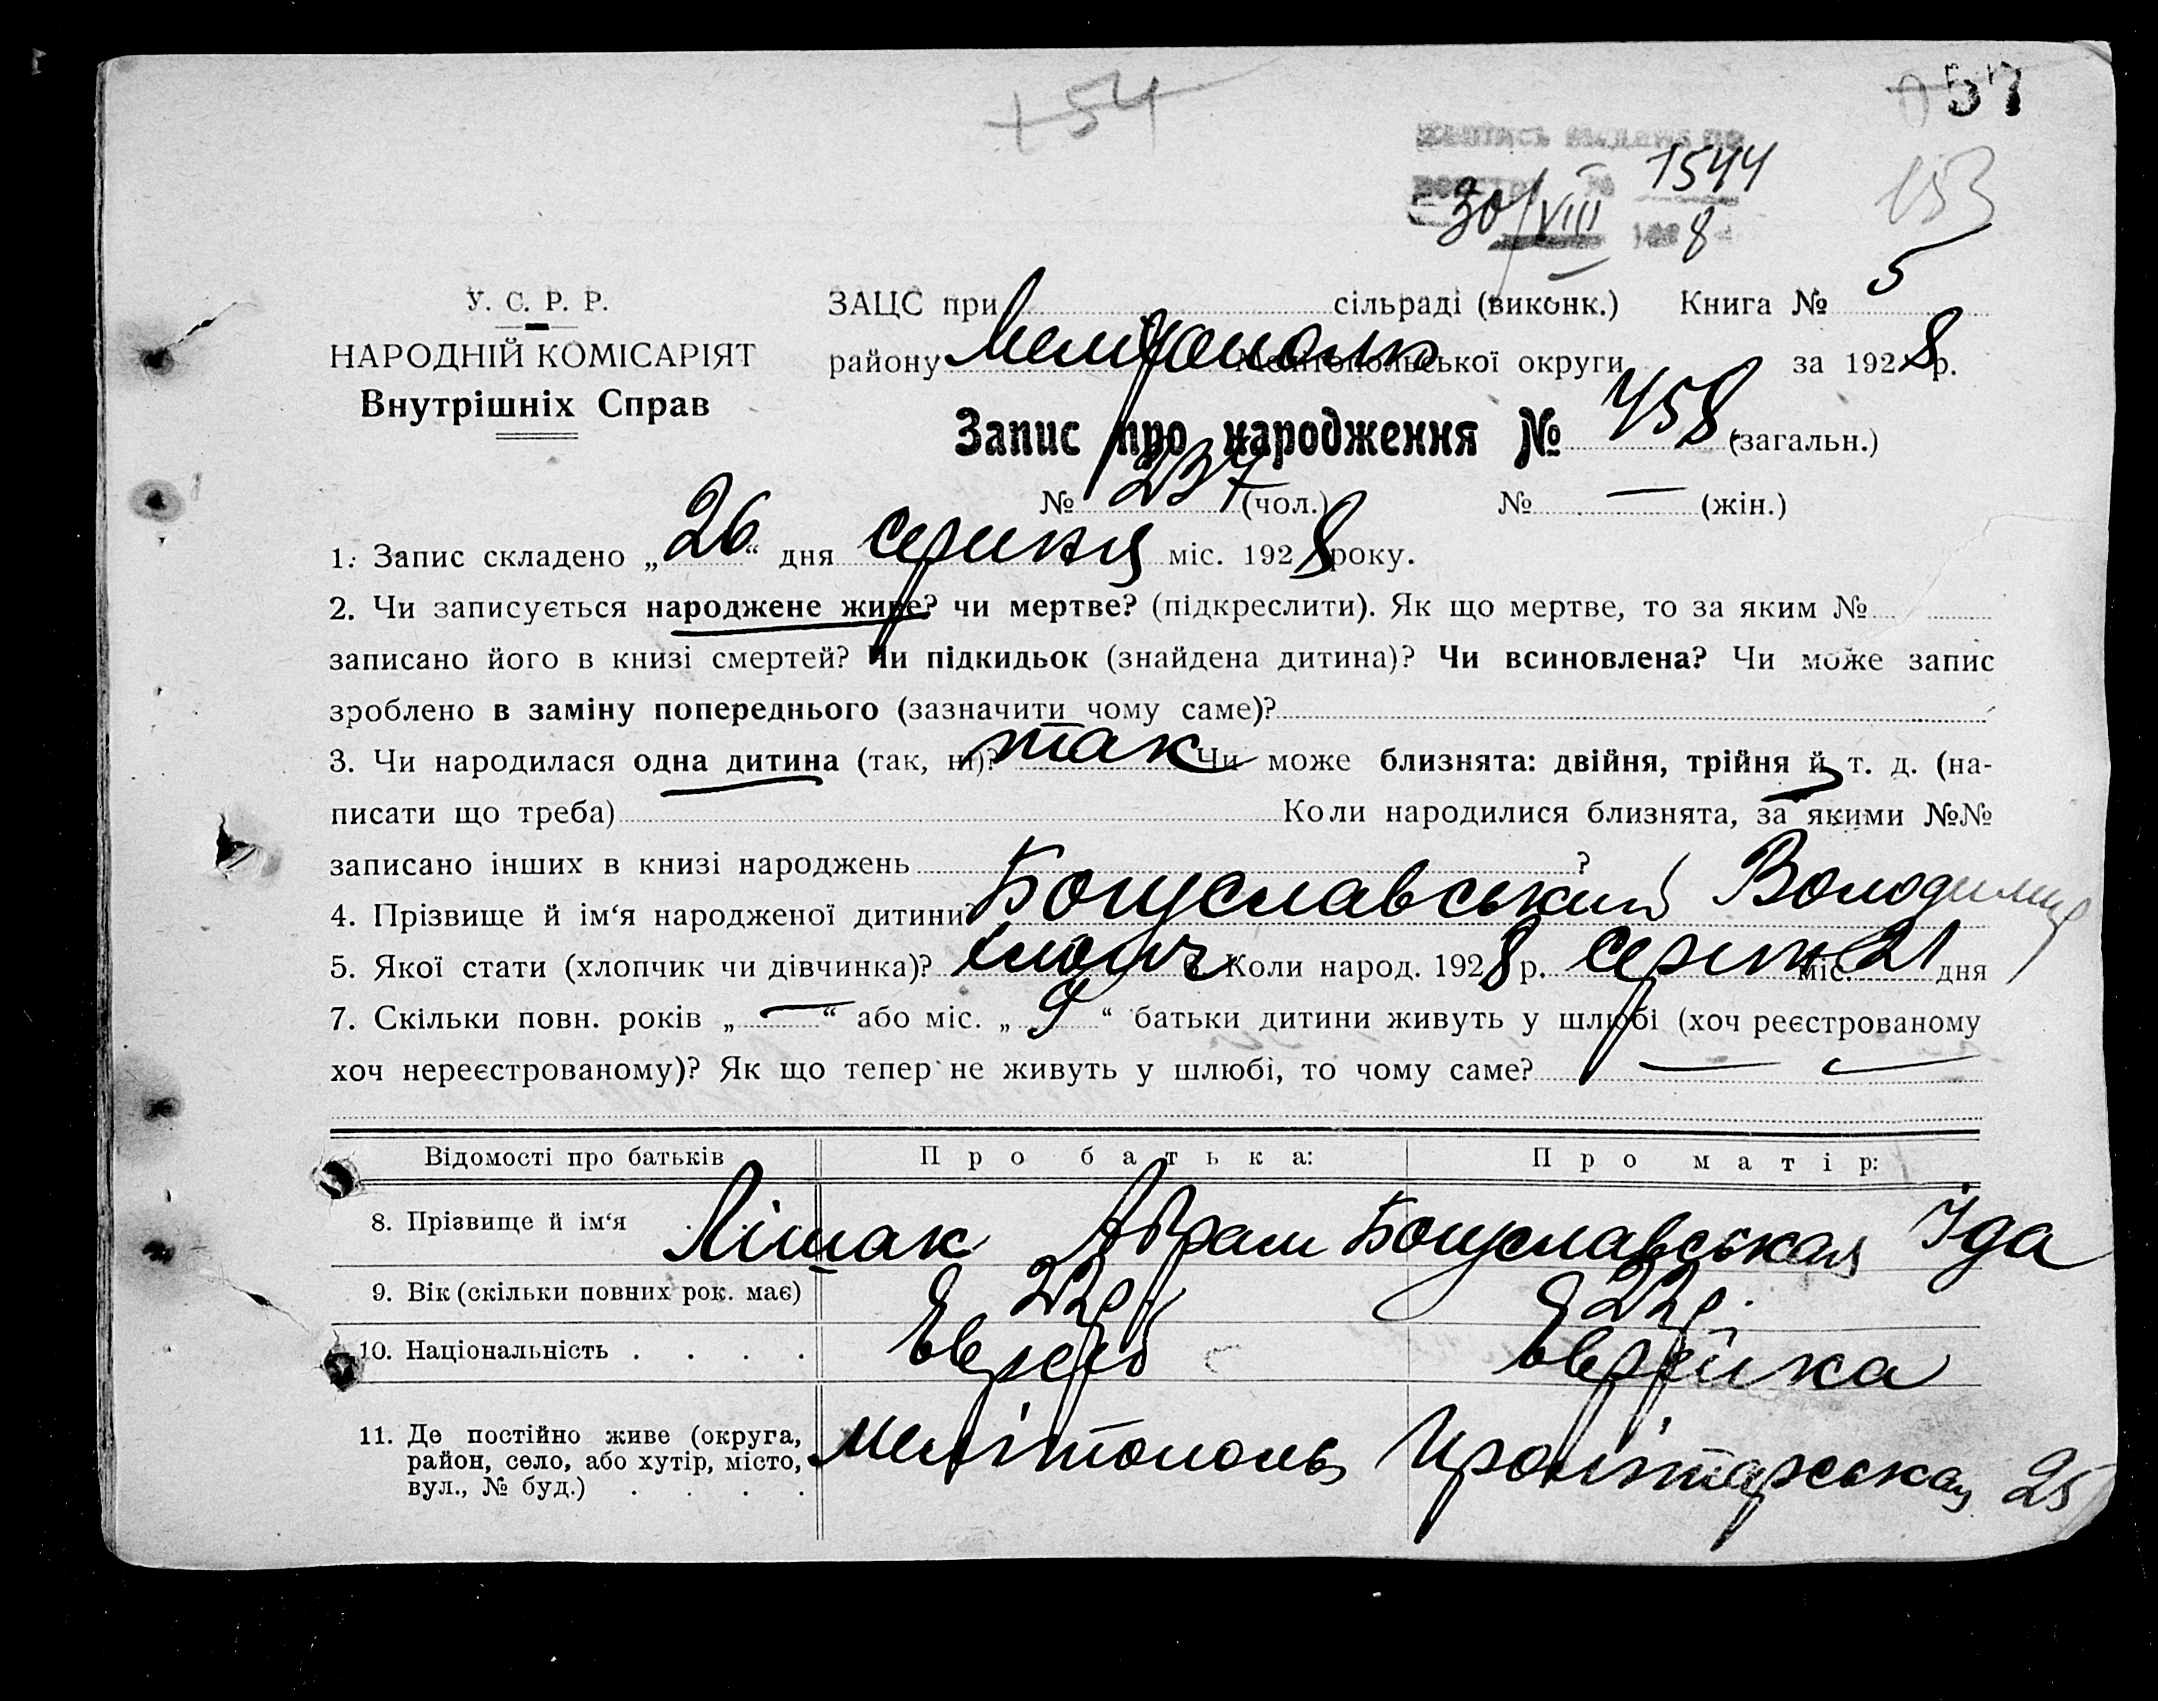 +54
57
1544
153
30/VIII 8
У. С. Р. Р.
НАРОДНІЙ КОМІСАРІЯТ
Внутрішніх Справ
ЗАЦС при сільраді (виконк.) Книга № 5
району Мелітопольської округи за 1928 р.
Запис про народження № 458 (загальн.)
№ 237 (чол.) № — (жін.)
1. Запис складено „26“ дня серпня міс. 1928 року.
2. Чи записується народжене живе? чи мертве? (підкреслити). Як що мертве, то за яким №
записано його в книзі смертей? Чи підкидьок (знайдена дитина)? Чи всиновлена? Чи може запис
зроблено в заміну попереднього (зазначити чому саме)?
3. Чи народилася одна дитина (так, ні)? так Чи може близнята: двійня, трійня й т. д. (на-
писати що треба) Коли народилися близнята, за якими №№
записано інших в книзі народжень ?
4. Прізвище й ім‘я народженої дитини Богуславський Володимир
5. Якої стати (хлопчик чи дівчинка)? хлопч Коли народ. 1928 р. серпн міс. 21 дня
7. Скільки повн. років „—“ або міс. „9“ батьки дитини живуть у шлюбі (хоч реєстрованому
хоч нереєстрованому)? Як що тепер не живуть у шлюбі, то чому саме? — —
Відомості про батьків Про батька: Про матір:
8. Прізвище й ім‘я Лішак Абрам Богуславская Іда
9. Вік (скільки повних рок. має) 22р. 22р.
10. Національність . . . . Еврей Еврейка
11. Де постійно живе (округа,
район, село, або хутір, місто,
вул., № буд.) . . . .
Мелітополь Пролітарская 25